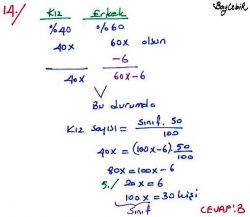 14./ Kız Erkek BayCebir
%40 %60
40x 60x olsun
-6
40x 60x-6
Bu durumda
Kız sayısı = sınıf . 50/100
40x = (100x-6) . 50/100
80x = 100x-6
5./ 20x = 6
100x = 30 kişi
Sınıf
CEVAP: B